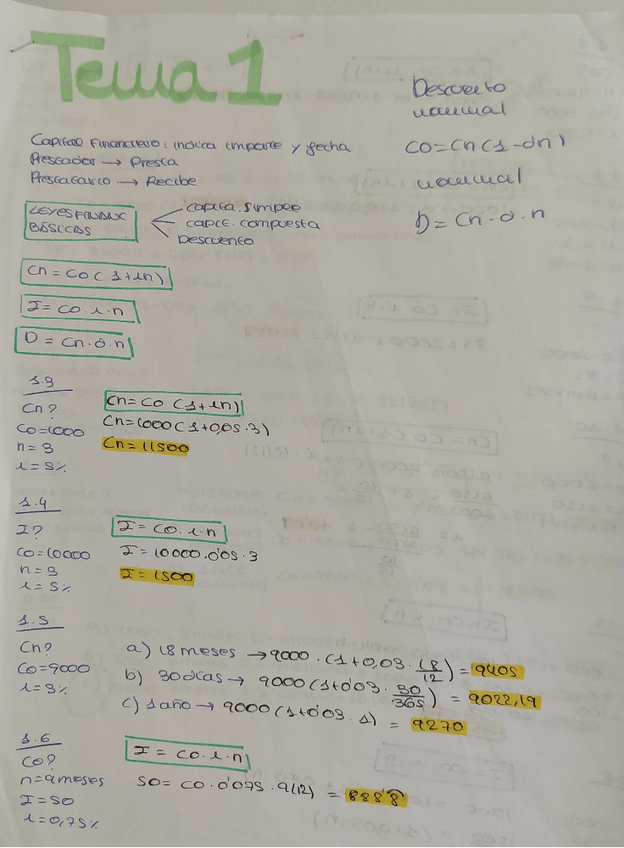 Tema 1
Descuento
normal
Capital Financiero: indica importe y fecha
Prestador → Presta
Prestatario → Recibe
C0=Cn(1-dn)
normal
D=Cn·d·n
LEYES FINANC
BÁSICAS
capita. simple
capit. compuesta
Descuento
Cn=C0(1+in)
I=C0·i·n
D=Cn·d·n
1.3
Cn?
C0=1000
n=3
i=5%
Cn=C0(1+in)
Cn=1000(1+0,05·3)
Cn=11500
1.4
I?
C0=10000
n=3
i=5%
I=C0·i·n
I=10000·0'05·3
I=1500
1.5
Cn?
C0=9000
i=3%
a) 18 meses → 9000·(1+0,03·18/12)=9405
b) 30 dias → 9000(1+0'03·30/365)=9022,19
c) 1 año → 9000(1+0'03·1)=9270
1.6
C0?
n=9 meses
I=50
i=0,75%
I=C0·i·n
50=C0·0'075·9/12)=888'8